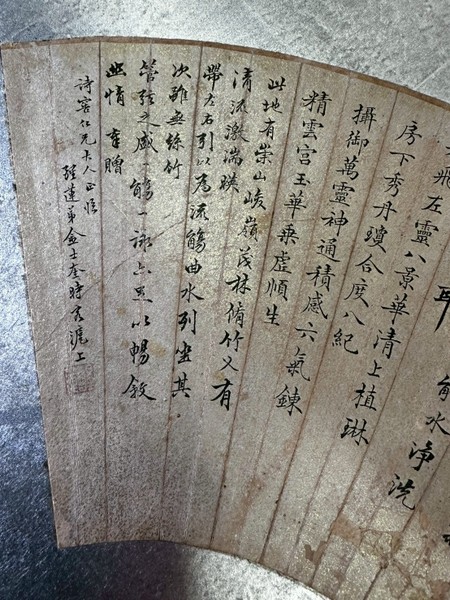 水淨洗
飛左靈八景華清上植琳
房下秀丹瓊合度八紀
攝御萬靈神通積感六氣鍊
精雲宮玉華乘虛順生
此地有崇山峻嶺茂林脩竹又有
清流激湍暎
帶左右引以為流觴曲水列坐其
次雖無絲竹
管弦之盛一觴一詠亦足以暢敘
幽情 奉贈
詩容仁兄大人正
弟金士奎時客滬上